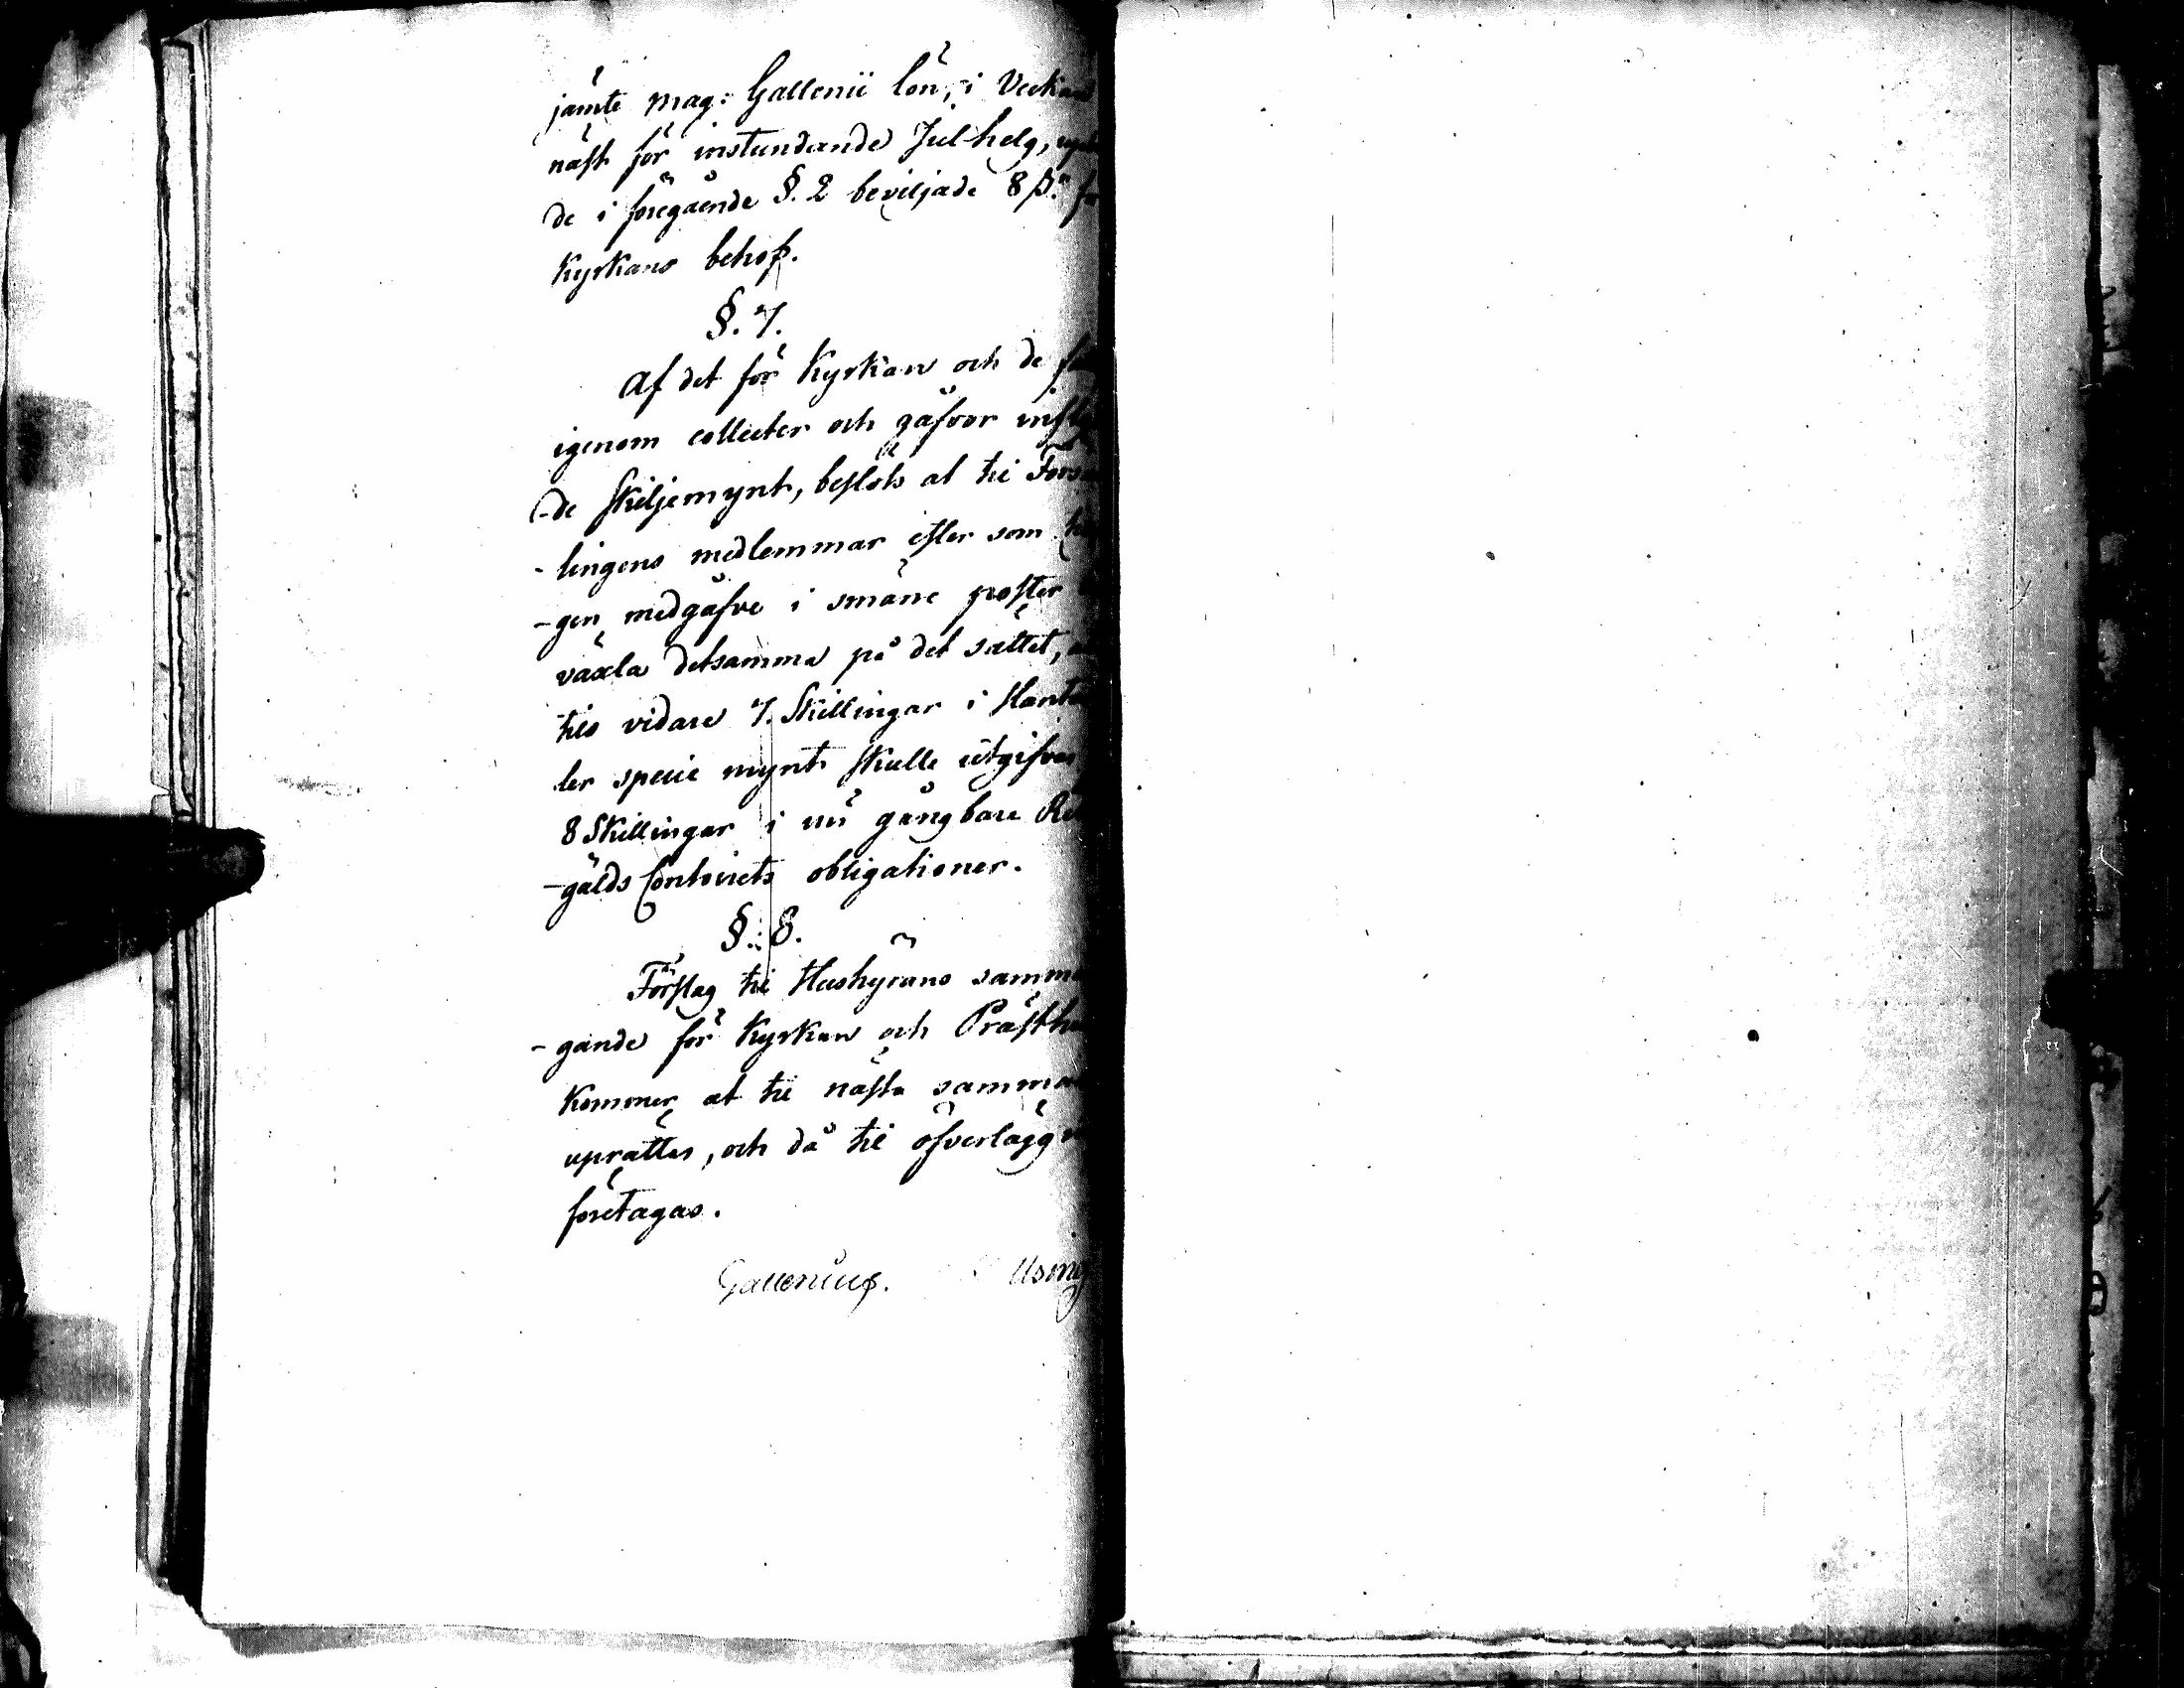 jämte mag: Gallenii lön, i Veckan
näst för instundande Jul-helg,
de i föregående §. 2 beviljade 8 ß.r
Kyrkans behof.
§. 7.
Af det för Kyrkan och de
igenom collecter och gåfvor
-de skiljemynt, beslöts at til
-lingens medlemmar efter som
-gen medgåfve i smärre poster
växla detsamma på det sättet,
tils vidare 7. Skillingar i
ler specie mynt skulle utgifvas
8 Skillingar i nu gångbare
-gälds Contoirets obligationer.
§. 8.
Förslag til Hushyrans
-gande för Kyrkan och
Kommer at til nästa
uprättas, och då til
företagas.
Gallenius.